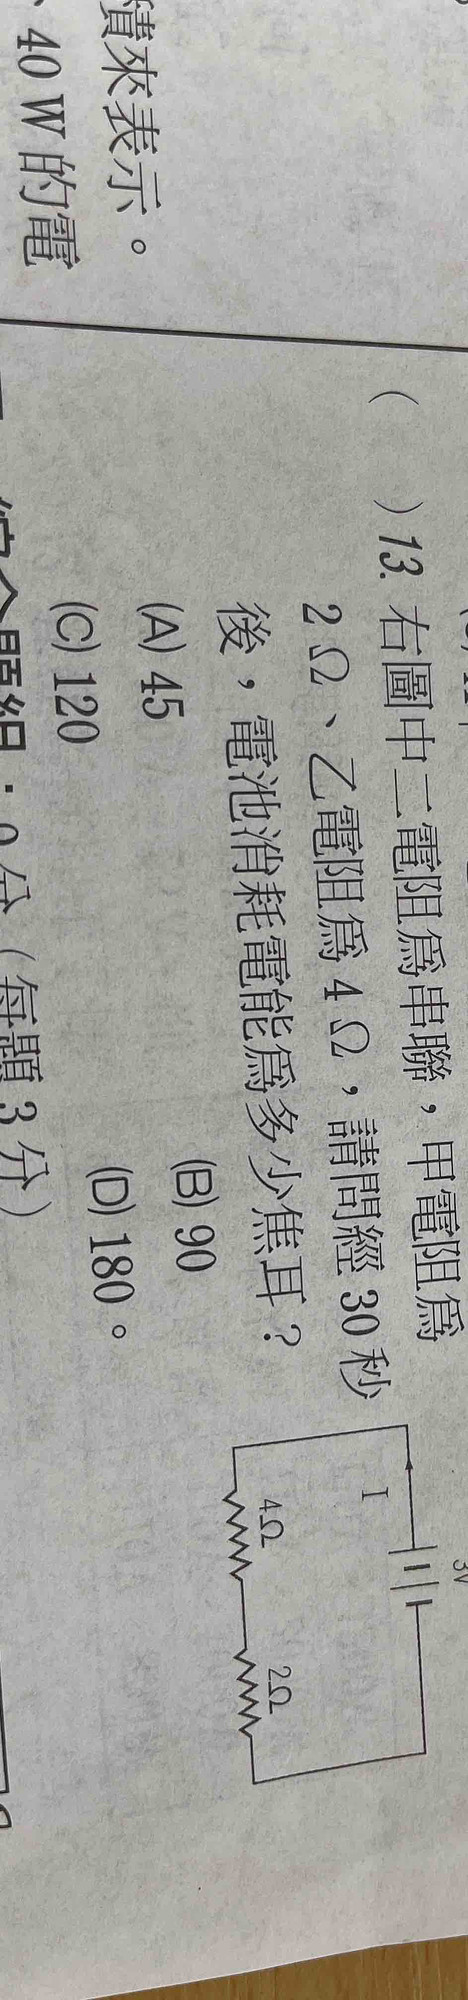 積來表示。
、40 W 的電
(　)13. 右圖中二電阻爲串聯，甲電阻爲
2 Ω、乙電阻爲 4 Ω，請問經 30 秒
後，電池消耗電能爲多少焦耳？
(A) 45
(B) 90
(C) 120
(D) 180。
3V
I
4Ω
2Ω
綜合題組：9 分（每題 3 分）